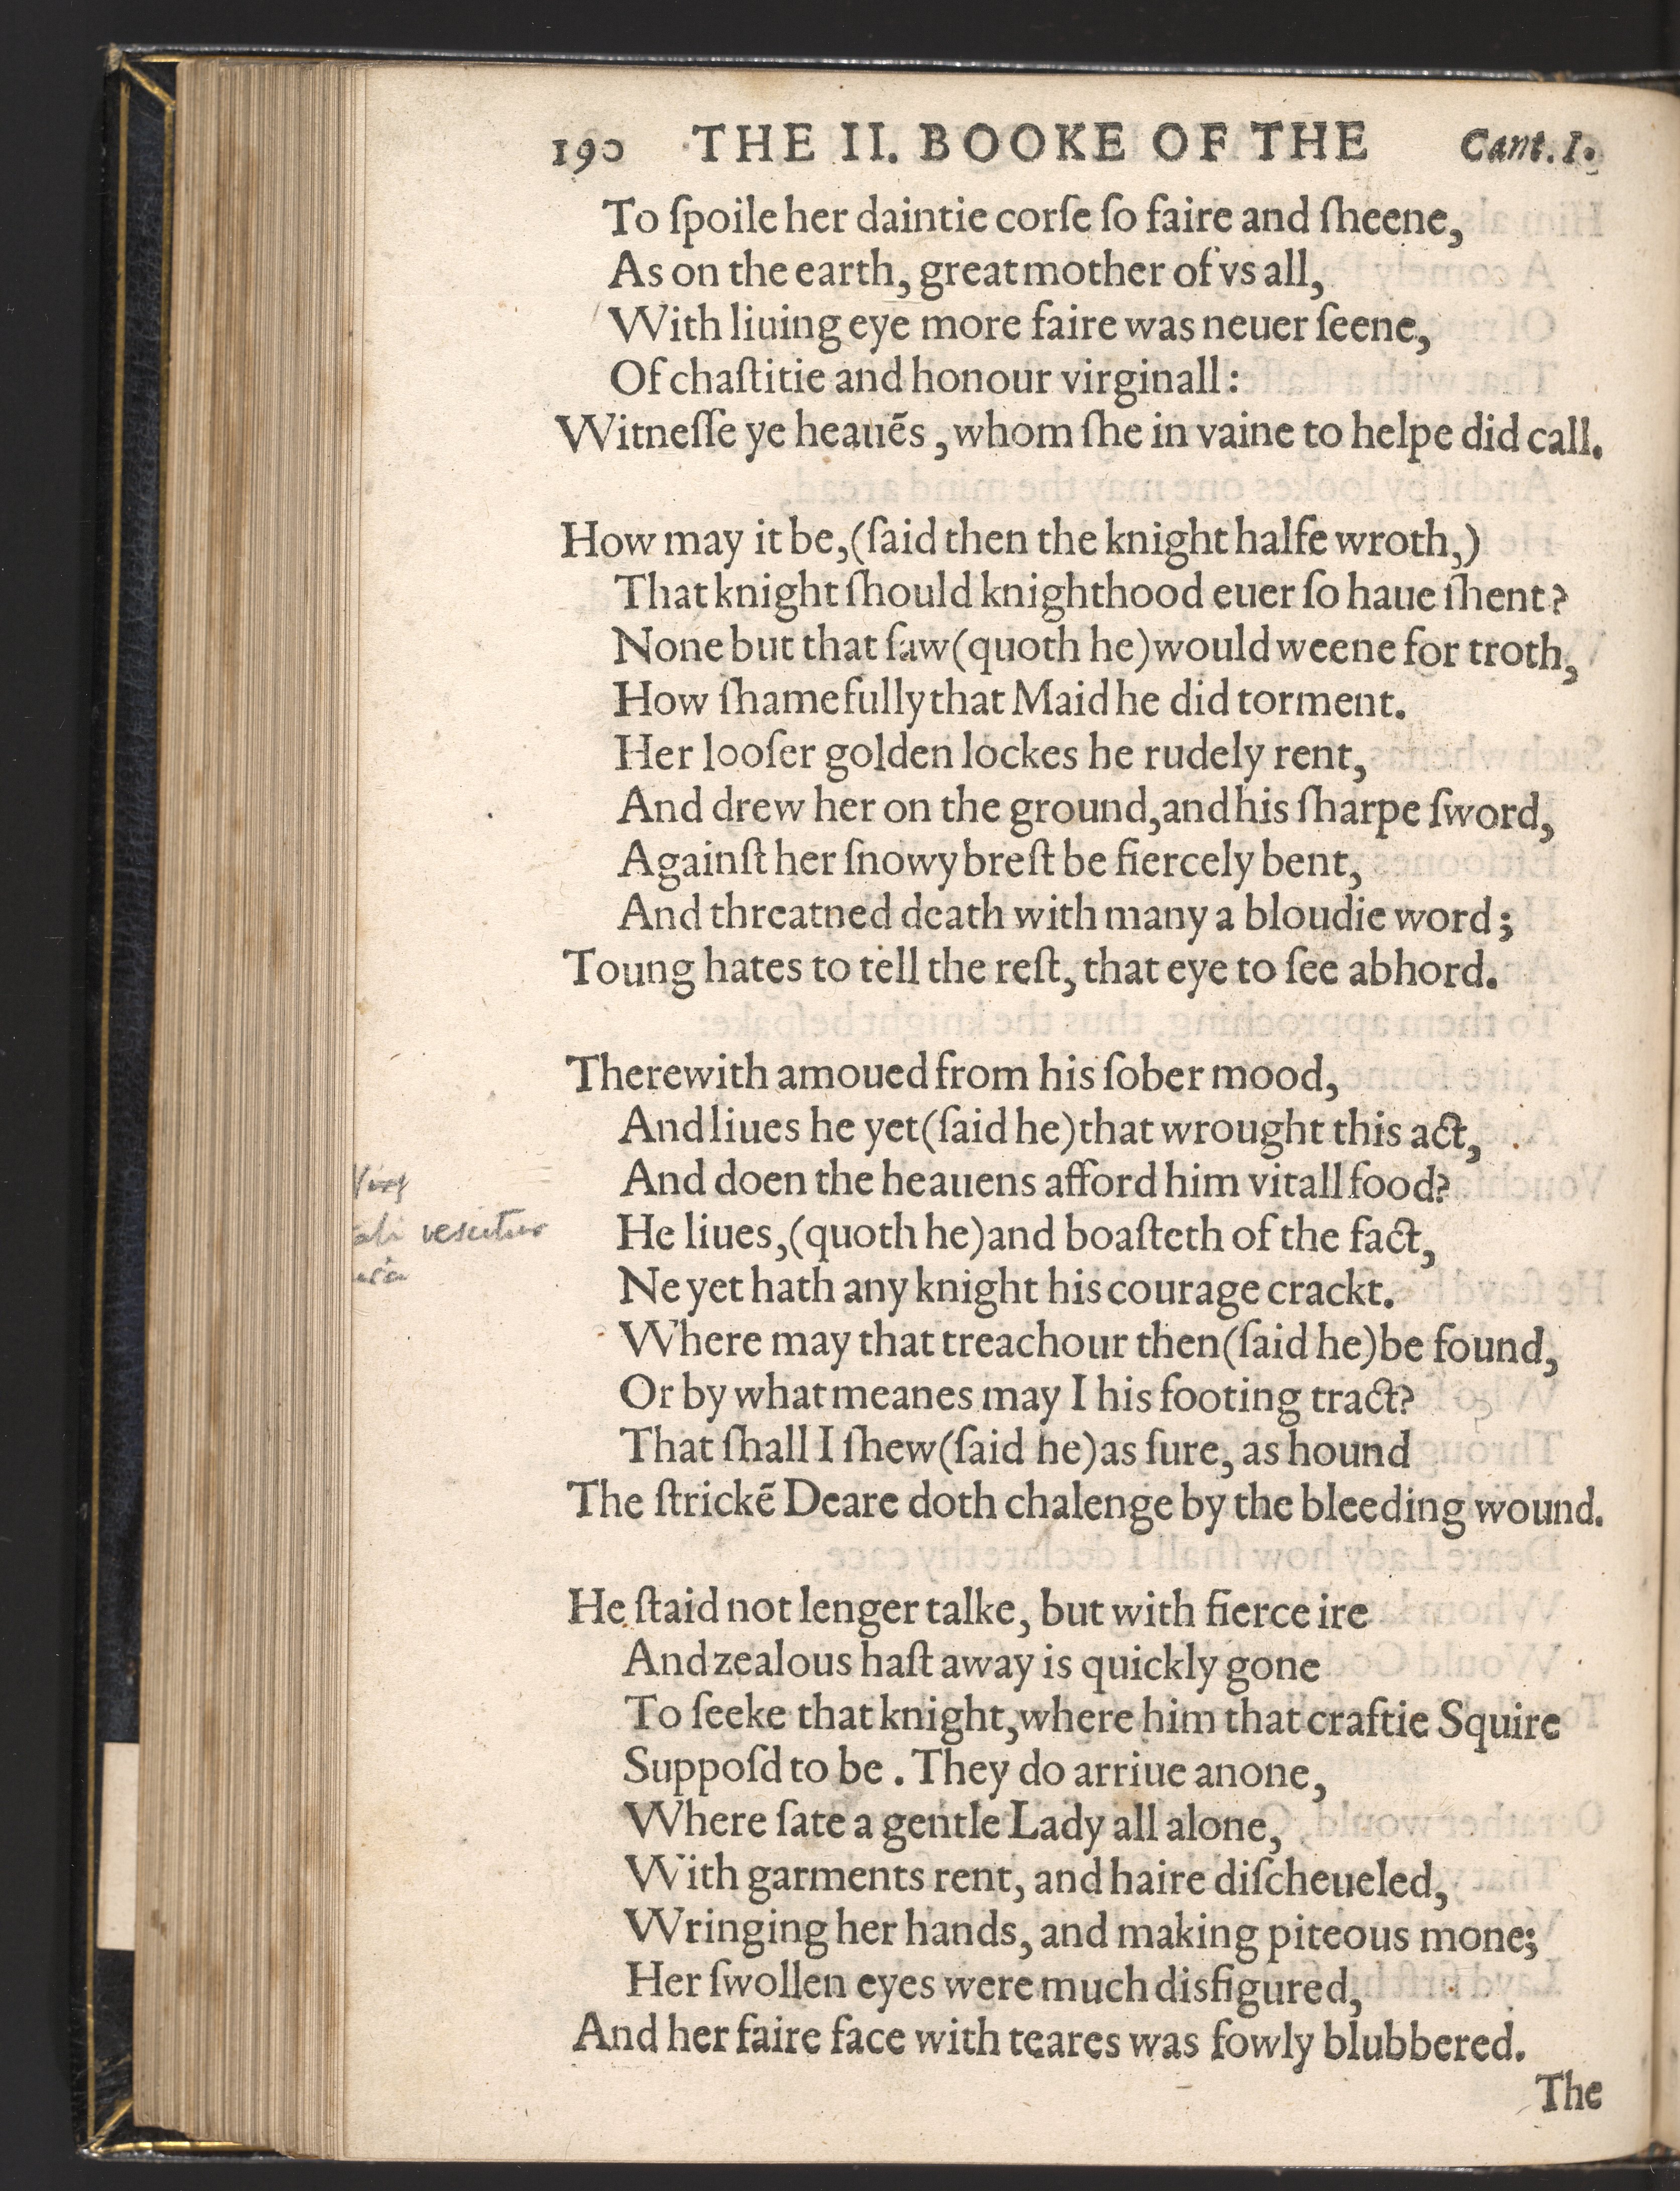 190 THE II. BOOKE OF THE Cant. I.
To ſpoile her daintie corſe ſo faire and ſheene,
As on the earth, great mother of vs all,
With liuing eye more faire was neuer ſeene,
Of chaſtitie and honour virginall:
Witneſſe ye heauẽs, whom ſhe in vaine to helpe did call.
How may it be, (ſaid then the knight halfe wroth,)
That knight ſhould knighthood euer ſo haue ſhent?
None but that ſaw (quoth he) would weene for troth,
How ſhamefully that Maid he did torment.
Her looſer golden lockes he rudely rent,
And drew her on the ground, and his ſharpe ſword,
Againſt her ſnowy breſt be fiercely bent,
And threatned death with many a bloudie word;
Toung hates to tell the reſt, that eye to ſee abhord.
Therewith amoued from his ſober mood,
And liues he yet (ſaid he) that wrought this act,
And doen the heauens afford him vitall food?
He liues, (quoth he) and boaſteth of the fact,
Ne yet hath any knight his courage crackt.
Where may that treachour then (ſaid he) be found,
Or by what meanes may I his footing tract?
That ſhall I ſhew (ſaid he) as ſure, as hound
The ſtrickẽ Deare doth chalenge by the bleeding wound.
He ſtaid not lenger talke, but with fierce ire
And zealous haſt away is quickly gone
To ſeeke that knight, where him that craftie Squire
Suppoſd to be. They do arriue anone,
Where ſate a gentle Lady all alone,
With garments rent, and haire diſcheueled,
Wringing her hands, and making piteous mone;
Her ſwollen eyes were much disfigured,
And her faire face with teares was fowly blubbered.
The
vescitur